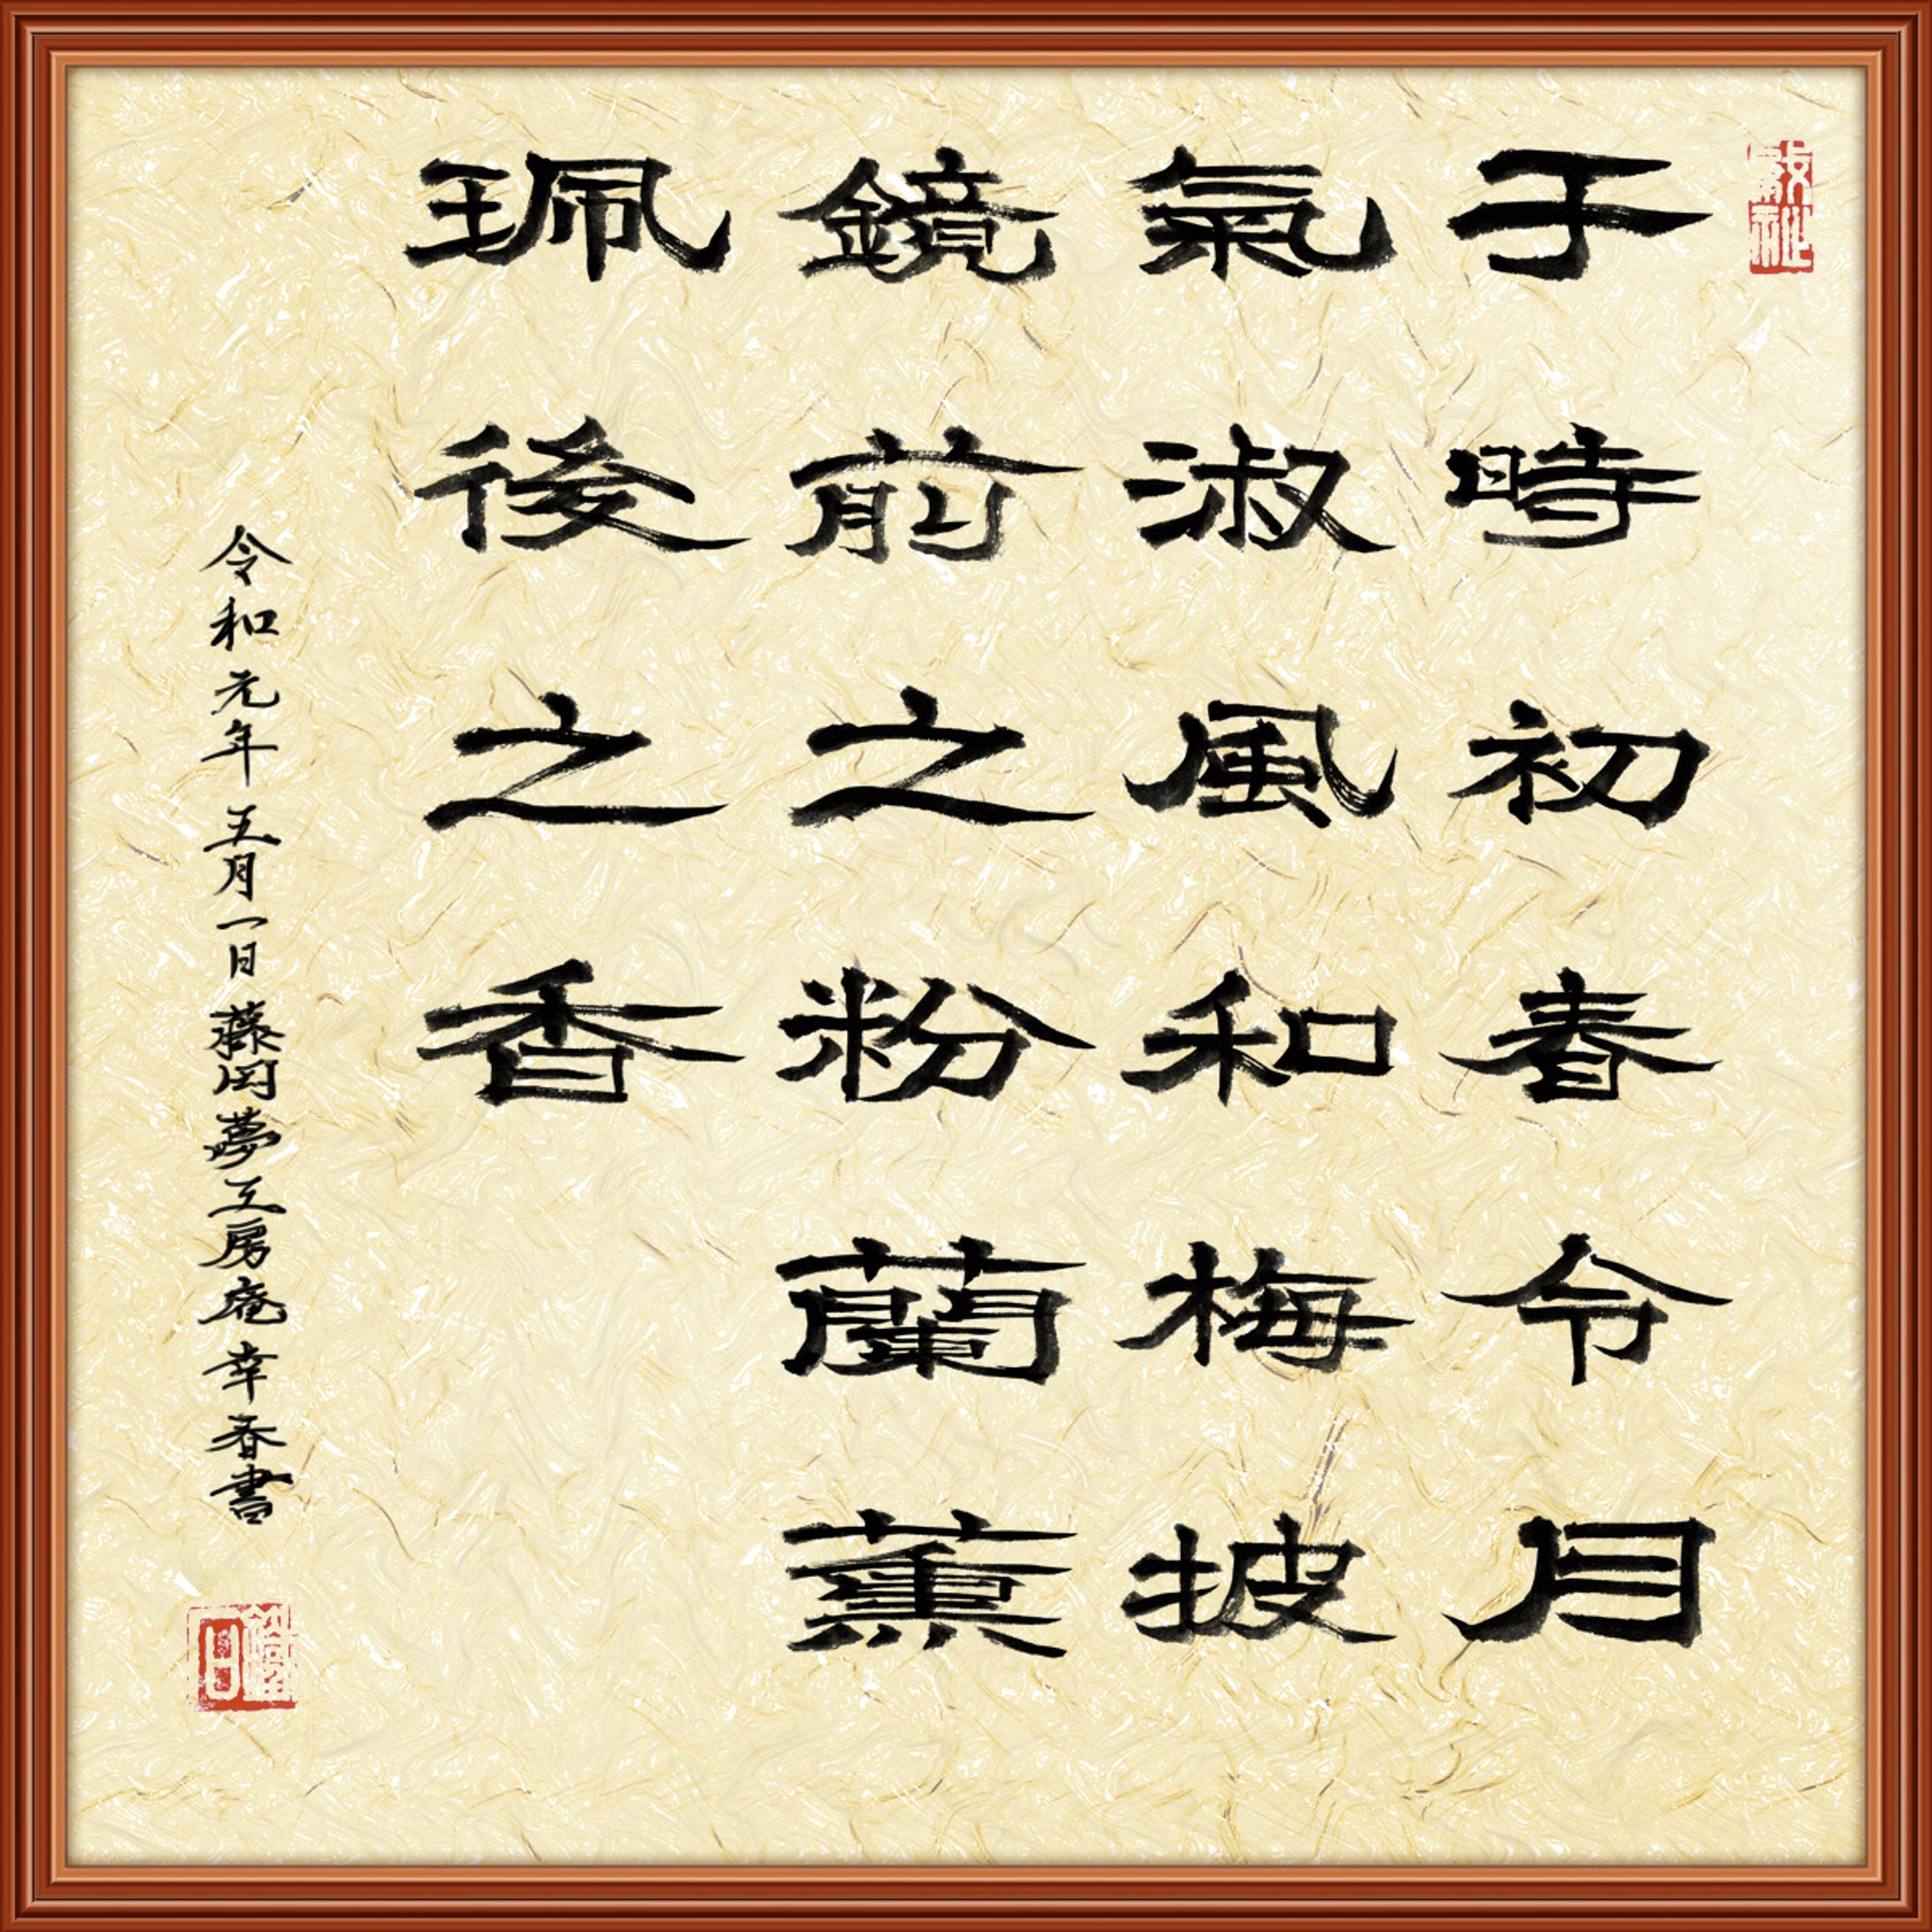 于時初春令月
氣淑風和梅披
鏡前之粉蘭薫
珮後之香
令和元年五月一日藤岡夢工房庵幸春書